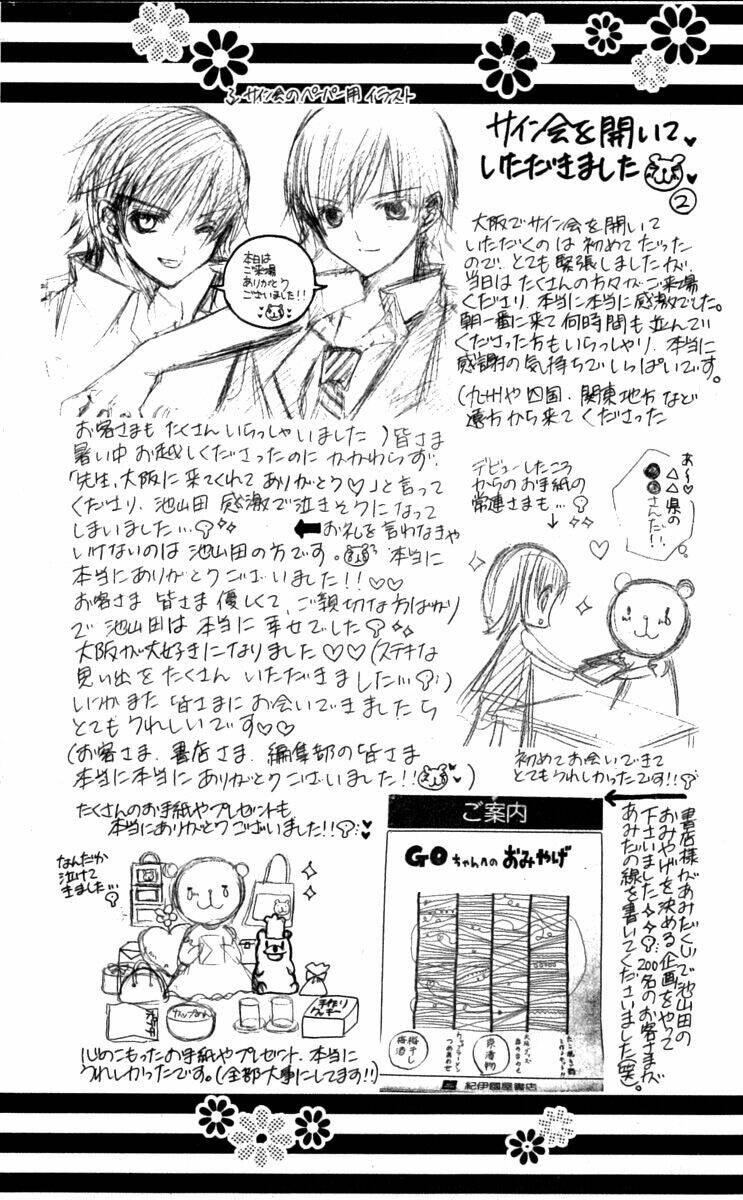 サイン会のペーパー用イラスト
サイン会を開いて
いただきました
②
本日は
ご来場
ありがとう
ございました!!
大阪でサイン会を開いて
いただくのは初めてだった
ので、とても緊張しましたが、
当日はたくさんの方々がご来場
くださり、本当に本当に感激でした。
朝一番に来て何時間も並んで
くださった方もいらっしゃり、本当に
感謝の気持ちでいっぱいです。
(九州や四国、関東地方など
遠方から来てくださった
お客さまもたくさんいらっしゃいました)皆さま
暑い中お越しくださったのにかかわらず、
「先生、大阪に来てくれてありがとう♡」と言って
くださり、池山田感激で泣きそうになって
しまいました…
←お礼を言わなきゃ
いけないのは池山田の方です。本当に
本当にありがとうございました!!♡♡
お客さま皆さま優しくて、ご親切な方ばかり
で池山田は本当に幸せでした
大阪が大好きになりました♡♡(ステキな
思い出をたくさんいただきました…)
いつかまた皆さまにお会いできましたら
とてもうれしいです♡♡
(お客さま、書店さま、編集部の皆さま
本当に本当にありがとうございました!!)
デビューしたころ
からのお手紙の
常連さまも…
↓
あ〜♡
△△県の
●●さんだ!!
初めてお会いできて
とてもうれしかったです!!
たくさんのお手紙やプレゼントも
本当にありがとうございました!!
なんだか
泣けて
きました…
カップめん
手作り
クッキー
心のこもったお手紙やプレゼント、本当に
うれしかったです。(全部大事にしてます!!)
ご案内
GOちゃんへのおみやげ
梅干し
梅酒
カップラーメン
つめあわせ
京漬物
大阪グッズ
たこ焼き器
紀伊國屋書店
書店様があみだくじで池山田の
おみやげを決める企画をやって
下さいました 200名のお客さまが
あみだの線を書いてくださいました(笑)。